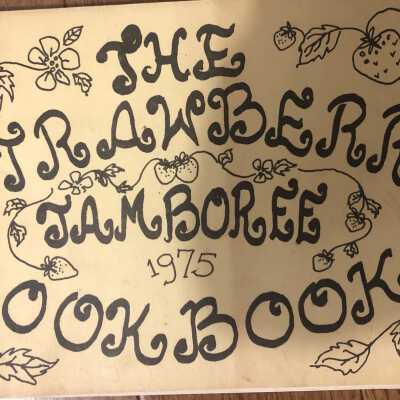 THE
TRAWBERR
JAMBOREE
1975
OOKBOOK